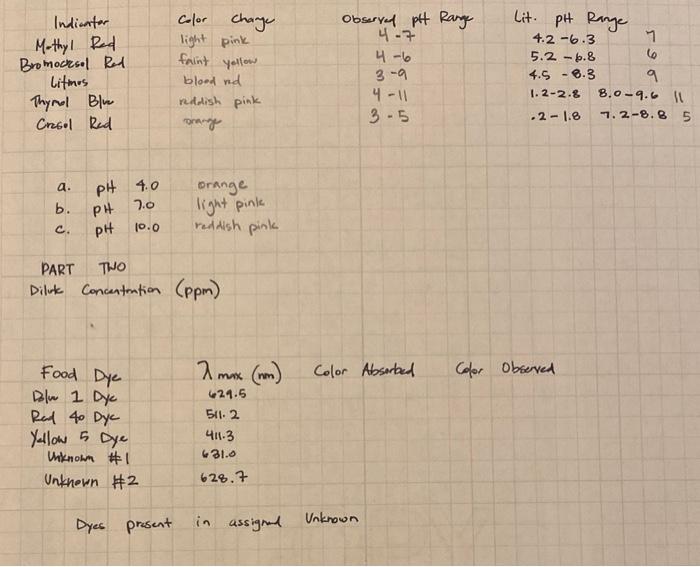 Indicator Color Change Observed pH Range Lit. pH Range
Methyl Red light pink 4-7 4.2-6.3 7
Bromocresol Red faint yellow 4-6 5.2-6.8 6
Litmus blood red 3-9 4.5-8.3 9
Thymol Blue reddish pink 4-11 1.2-2.8 8.0-9.6 11
Cresol Red orange 3-5 .2-1.8 7.2-8.8 5
a. pH 4.0 orange
b. pH 7.0 light pink
c. pH 10.0 reddish pink
PART TWO
Dilute Concentration (ppm)
Food Dye λ max (nm) Color Absorbed Color Observed
Blue 1 Dye 629.5
Red 40 Dye 511.2
Yellow 5 Dye 411.3
Unknown #1 631.0
Unknown #2 628.7
Dyes present in assigned Unknown